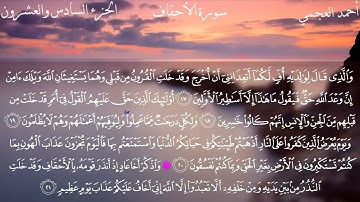 أحمد العجمي
سورة الأحقاف
الجزء السادس والعشرون
وَٱلَّذِى قَالَ لِوَٰلِدَيْهِ أُفٍّ لَّكُمَآ أَتَعِدَانِنِىٓ أَنْ أُخْرَجَ وَقَدْ خَلَتِ ٱلْقُرُونُ مِن قَبْلِى وَهُمَا يَسْتَغِيثَانِ ٱللَّهَ وَيْلَكَ ءَامِنْ
إِنَّ وَعْدَ ٱللَّهِ حَقٌّ فَيَقُولُ مَا هَٰذَآ إِلَّآ أَسَٰطِيرُ ٱلْأَوَّلِينَ ١٧ أُو۟لَٰٓئِكَ ٱلَّذِينَ حَقَّ عَلَيْهِمُ ٱلْقَوْلُ فِىٓ أُمَمٍ قَدْ خَلَتْ مِن
قَبْلِهِم مِّنَ ٱلْجِنِّ وَٱلْإِنسِ إِنَّهُمْ كَانُوا۟ خَٰسِرِينَ ١٨ وَلِكُلٍّ دَرَجَٰتٌ مِّمَّا عَمِلُوا۟ وَلِيُوَفِّيَهُمْ أَعْمَٰلَهُمْ وَهُمْ لَا يُظْلَمُونَ ١٩
وَيَوْمَ يُعْرَضُ ٱلَّذِينَ كَفَرُوا۟ عَلَى ٱلنَّارِ أَذْهَبْتُمْ طَيِّبَٰتِكُمْ فِى حَيَاتِكُمُ ٱلدُّنْيَا وَٱسْتَمْتَعْتُم بِهَا فَٱلْيَوْمَ تُجْزَوْنَ عَذَابَ ٱلْهُونِ بِمَا
كُنتُمْ تَسْتَكْبِرُونَ فِى ٱلْأَرْضِ بِغَيْرِ ٱلْحَقِّ وَبِمَا كُنتُمْ تَفْسُقُونَ ٢٠ وَٱذْكُرْ أَخَا عَادٍ إِذْ أَنذَرَ قَوْمَهُۥ بِٱلْأَحْقَافِ وَقَدْ خَلَتِ
ٱلنُّذُرُ مِنۢ بَيْنِ يَدَيْهِ وَمِنْ خَلْفِهِۦٓ أَلَّا تَعْبُدُوٓا۟ إِلَّا ٱللَّهَ إِنِّىٓ أَخَافُ عَلَيْكُمْ عَذَابَ يَوْمٍ عَظِيمٍ ٢١